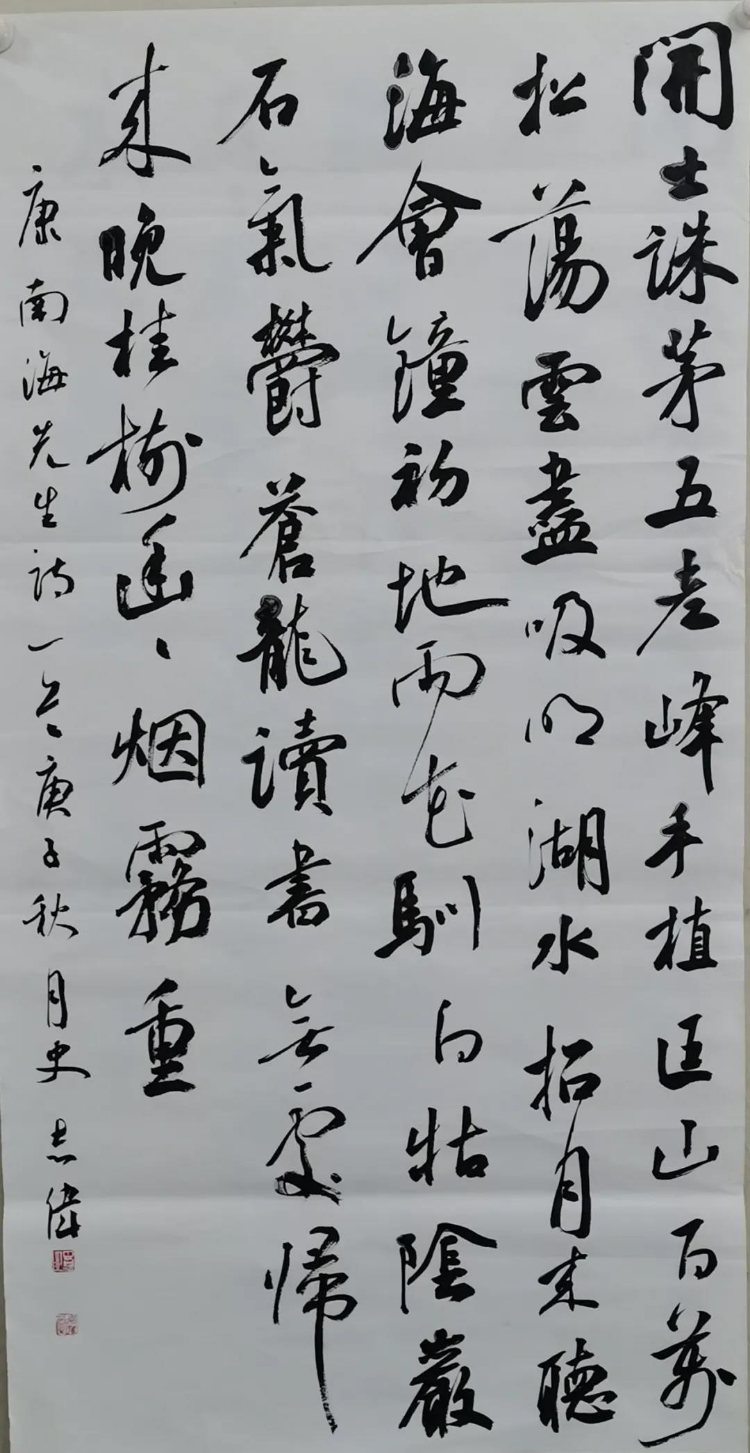 開士誅茅五老峰手植匡山百萬
松蕩雲盡吸明湖水招月來聽
海會鐘初地雨花馴白牯陰巖
石氣鬱蒼龍讀書無處歸
來晚桂樹遥〻烟霧重
康南海先生詩一首庚子秋月史志偉